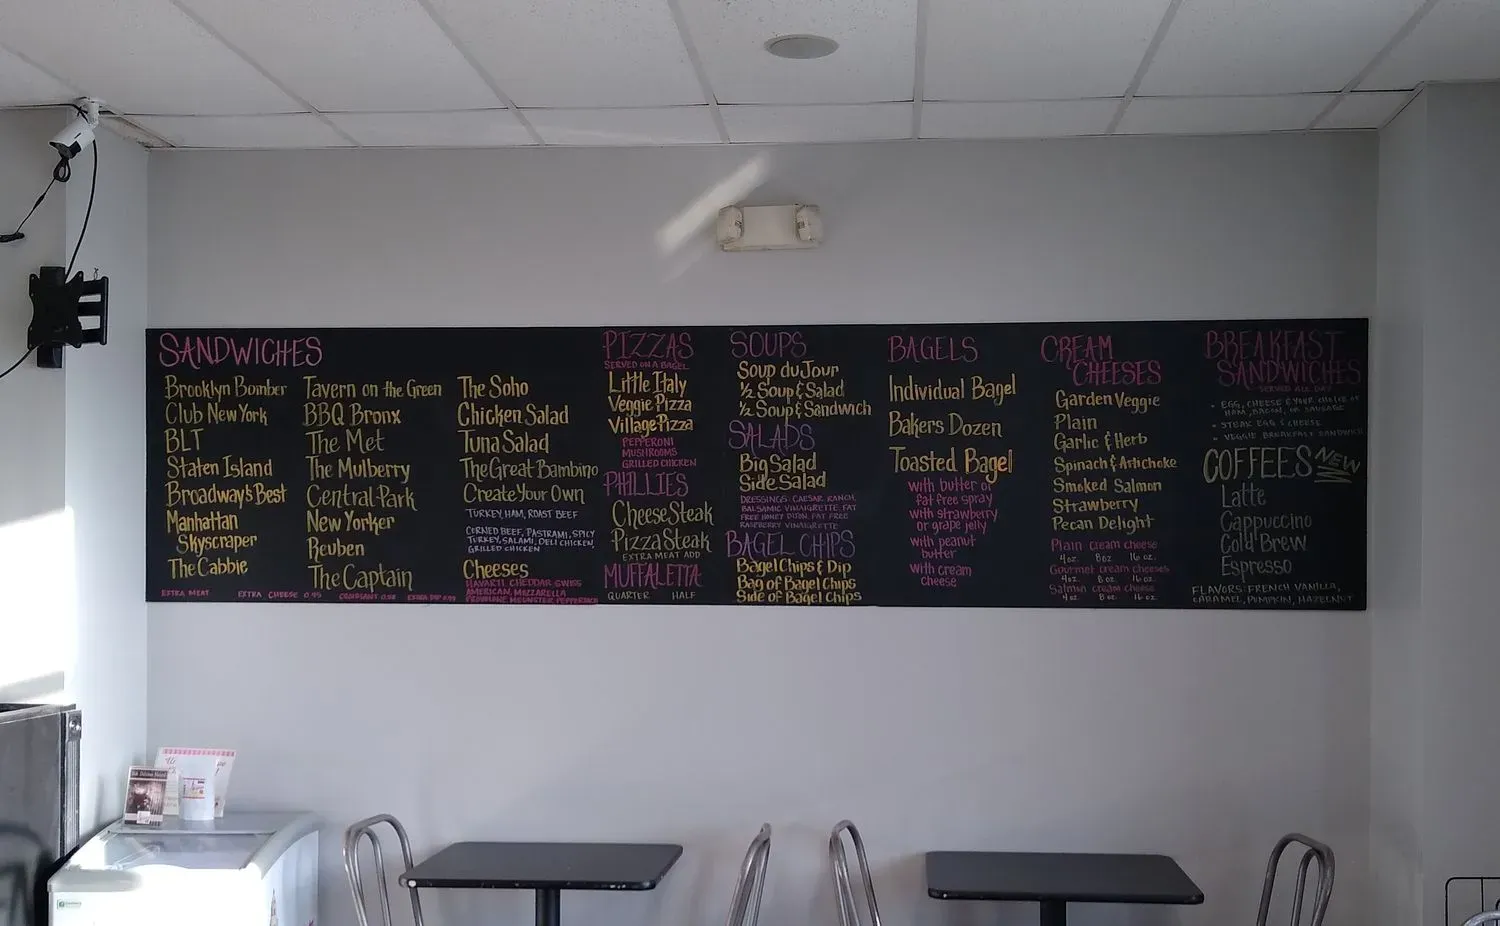 SANDWICHES
Brooklyn Bomber
Club New York
BLT
Staten Island
Broadway's Best
Manhattan
Skyscraper
The Cabbie
Tavern on the Green
BBQ Bronx
The Met
The Mulberry
Central Park
New Yorker
Reuben
The Captain
The Soho
Chicken Salad
Tuna Salad
The Great Bambino
Create Your Own
TURKEY, HAM, ROAST BEEF
CORNED BEEF, PASTRAMI, SPICY
TURKEY, SALAMI, DELI CHICKEN,
GRILLED CHICKEN
Cheeses
HAVARTI, CHEDDAR, SWISS
AMERICAN, MOZZARELLA
PROVOLONE, MUENSTER, PEPPERJACK
EXTRA MEAT
EXTRA CHEESE 0.95
PIZZAS
SERVED ON A BAGEL
Little Italy
Veggie Pizza
Village Pizza
PEPPERONI
MUSHROOMS
GRILLED CHICKEN
PHILLIES
Cheese Steak
Pizza Steak
EXTRA MEAT ADD
MUFFALETTA
QUARTER HALF
SOUPS
Soup du Jour
½ Soup & Salad
½ Soup & Sandwich
SALADS
Big Salad
Side Salad
DRESSINGS: CAESAR, RANCH,
BALSAMIC VINAIGRETTE, FAT
FREE HONEY DIJON, FAT FREE
RASPBERRY VINAIGRETTE
BAGEL CHIPS
Bagel Chips & Dip
Bag of Bagel Chips
Side of Bagel Chips
BAGELS
Individual Bagel
Bakers Dozen
Toasted Bagel
with butter or
fat free spray
with strawberry
or grape jelly
with peanut
butter
with cream
cheese
CREAM
CHEESES
Garden Veggie
Plain
Garlic & Herb
Spinach & Artichoke
Smoked Salmon
Strawberry
Pecan Delight
Plain cream cheese
4oz. 8oz. 16oz.
Gourmet cream cheeses
4oz. 8oz. 16oz.
Salmon cream cheese
4oz. 8oz. 16oz.
BREAKFAST
SANDWICHES
SERVED ALL DAY
• EGG, CHEESE & YOUR CHOICE OF
HAM, BACON, OR SAUSAGE
• STEAK EGG & CHEESE
• VEGGIE BREAKFAST SANDWICH
COFFEES NEW
Latte
Cappuccino
Cold Brew
Espresso
FLAVORS: FRENCH VANILLA,
CARAMEL, PUMPKIN, HAZELNUT